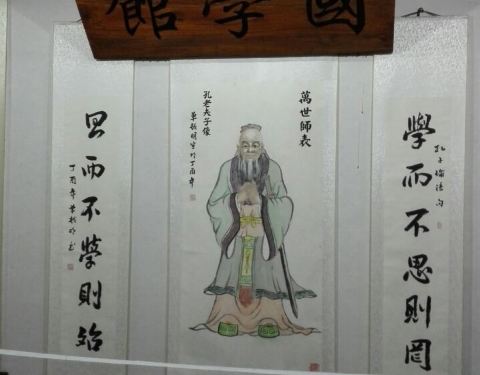 國學館
學而不思則罔
孔子論語句
萬世師表
孔老夫子像
丁酉年
思而不學則殆
丁酉年